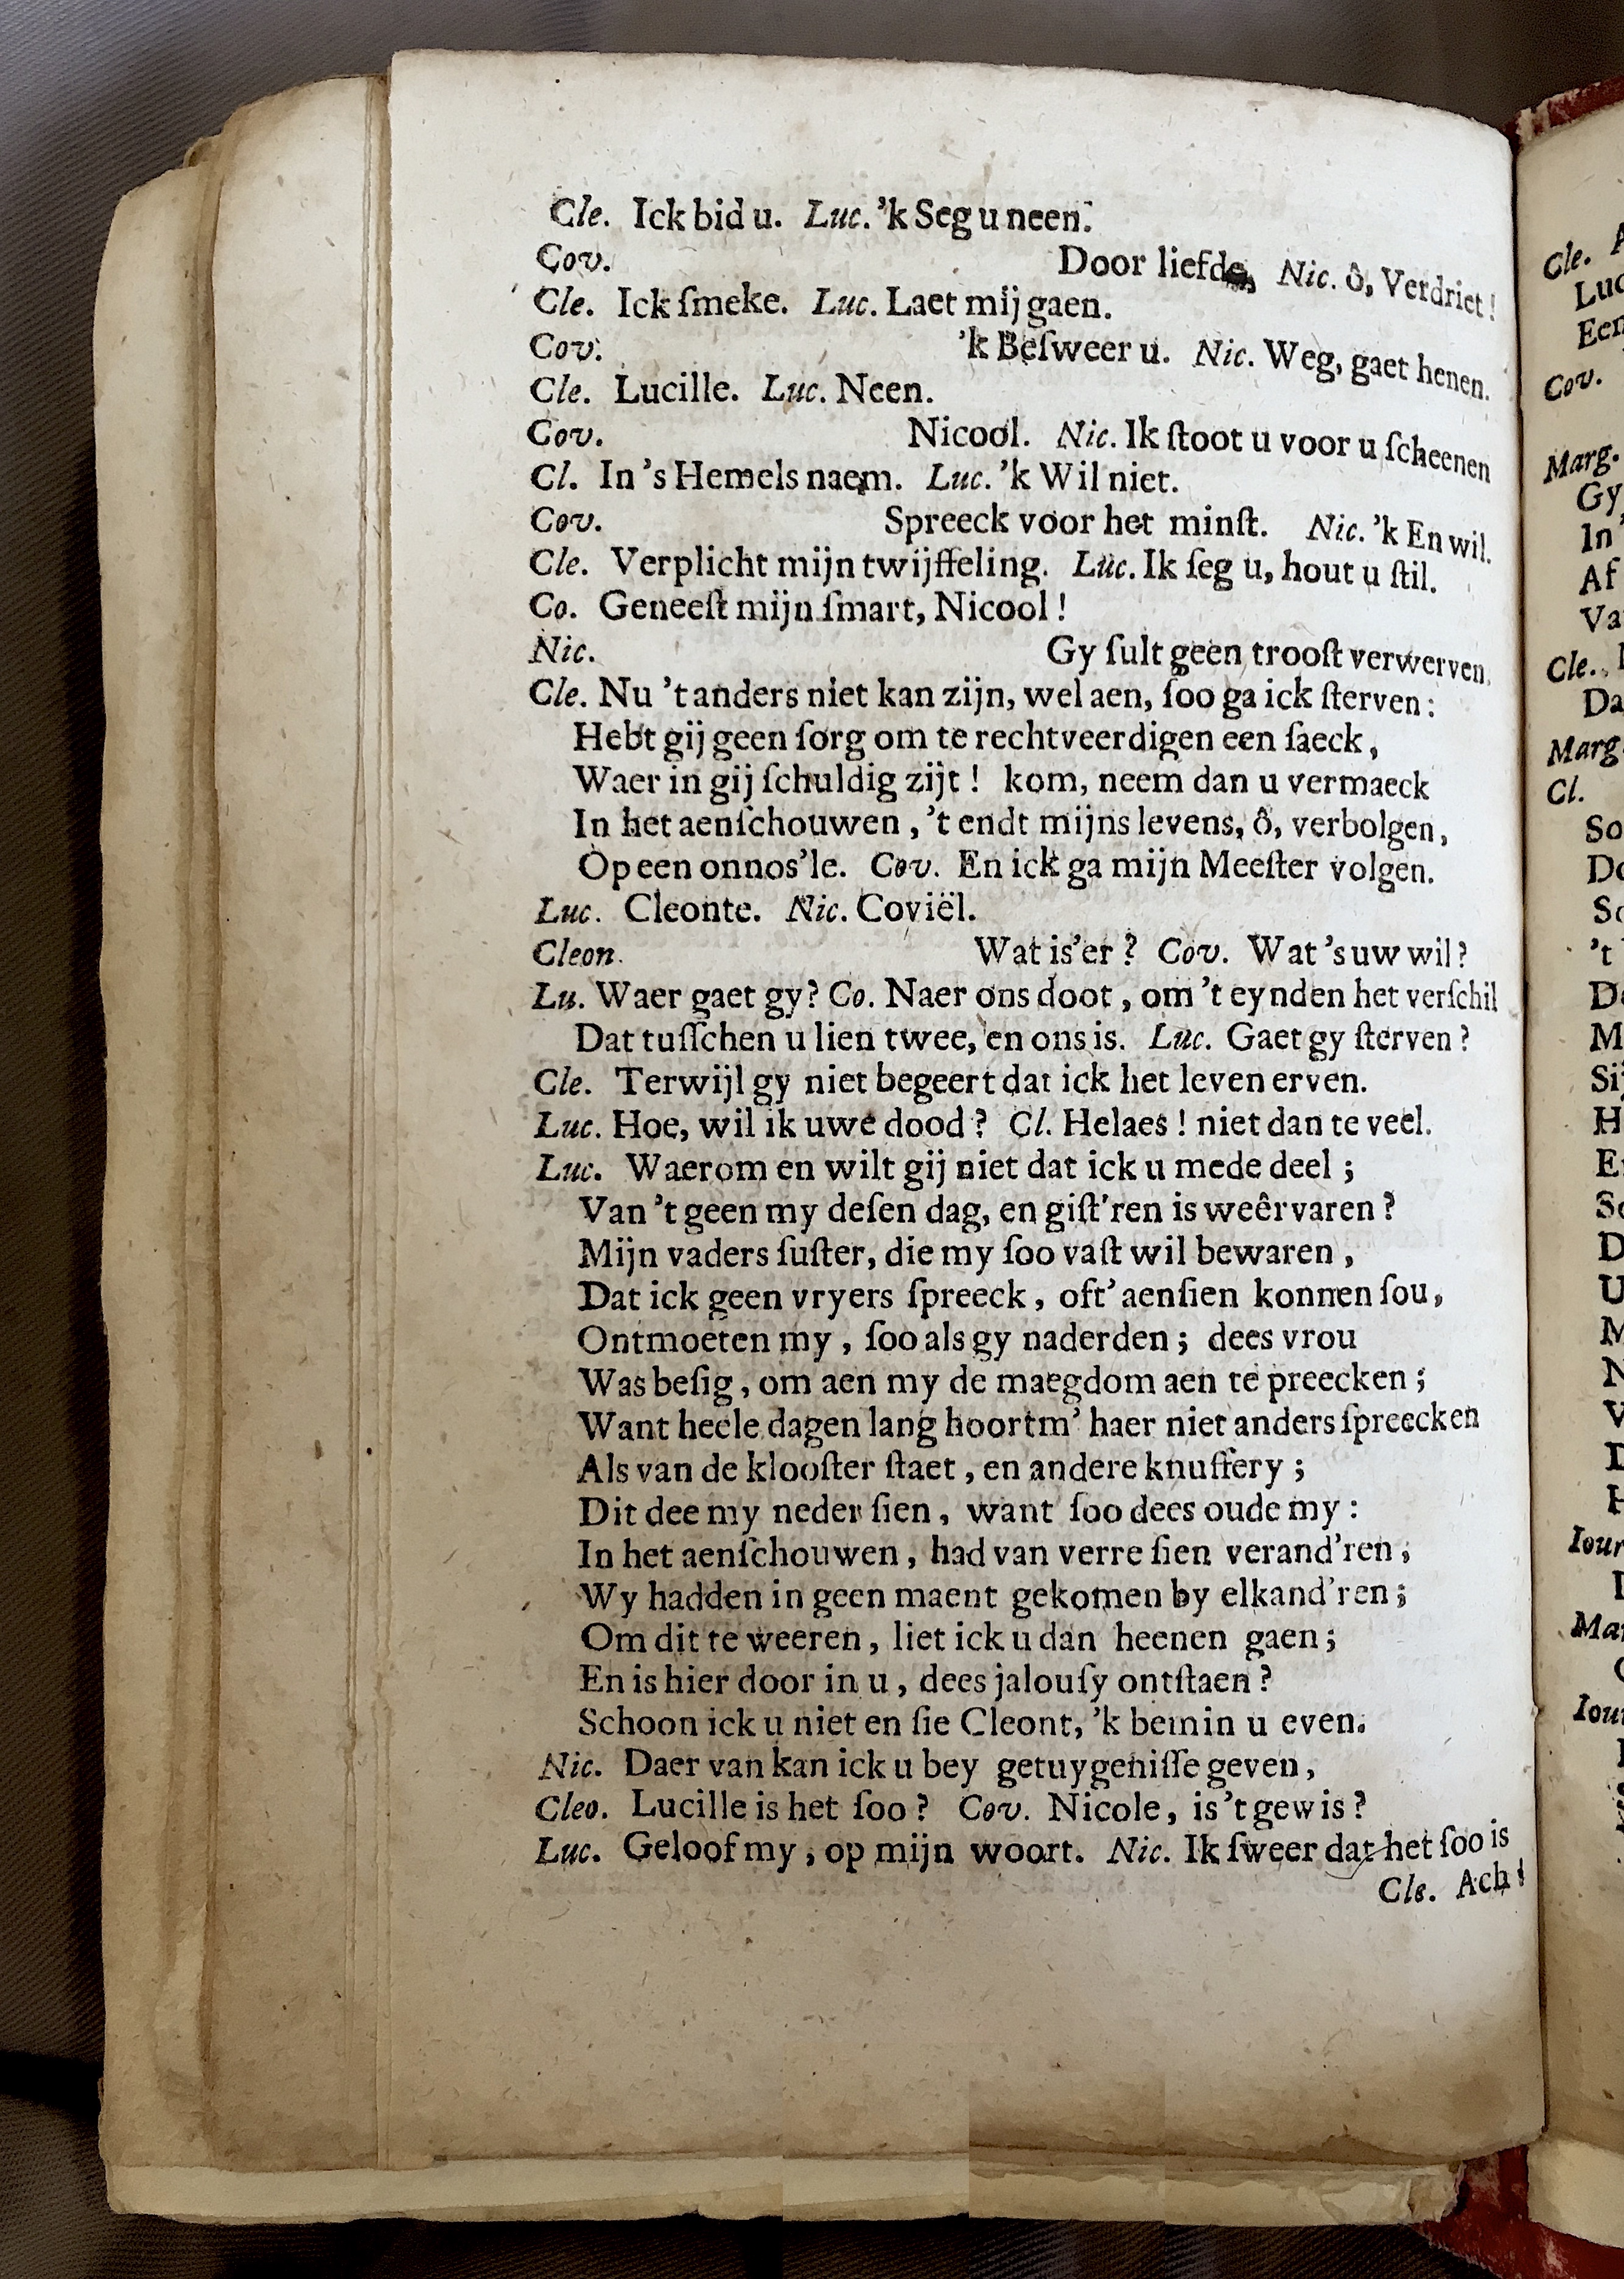 Cle. Ick bid u. Luc. 'k Seg u neen.
Cov. Door liefde, Nic. ô, Verdriet!
Cle. Ick ſmeke. Luc. Laet mij gaen.
Cov. 'k Beſweer u. Nic. Weg, gaet henen.
Cle. Lucille. Luc. Neen.
Cov. Nicool. Nic. Ik ſtoot u voor u ſcheenen
Cl. In 's Hemels naem. Luc. 'k Wil niet.
Cov. Spreeck voor het minſt. Nic. 'k En wil.
Cle. Verplicht mijn twijffeling. Luc. Ik ſeg u, hout u ſtil.
Co. Geneeſt mijn ſmart, Nicool!
Nic. Gy ſult geen trooſt verwerven.
Cle. Nu 't anders niet kan zijn, wel aen, ſoo ga ick ſterven:
Hebt gij geen ſorg om te rechtveerdigen een ſaeck,
Waer in gij ſchuldig zijt! kom, neem dan u vermaeck
In het aenſchouwen, 't endt mijns levens, ô, verbolgen,
Op een onnos'le. Cov. En ick ga mijn Meeſter volgen.
Luc. Cleonte. Nic. Coviël.
Cleon. Wat is'er? Cov. Wat 's uw wil?
Lu. Waer gaet gy? Co. Naer ons doot, om 't eynden het verſchil
Dat tuſſchen u lien twee, en ons is. Luc. Gaet gy ſterven?
Cle. Terwijl gy niet begeert dat ick het leven erven.
Luc. Hoe, wil ik uwe dood? Cl. Helaes! niet dan te veel.
Luc. Waerom en wilt gij niet dat ick u mede deel;
Van 't geen my deſen dag, en giſt'ren is weêrvaren?
Mijn vaders ſuſter, die my ſoo vaſt wil bewaren,
Dat ick geen vryers ſpreeck, oft' aenſien konnen ſou,
Ontmoeten my, ſoo als gy naderden; dees vrou
Was beſig, om aen my de maegdom aen te preecken;
Want heele dagen lang hoortm' haer niet anders ſpreecken
Als van de klooſter ſtaet, en andere knuffery;
Dit dee my neder ſien, want ſoo dees oude my:
In het aenſchouwen, had van verre ſien verand'ren,
Wy hadden in geen maent gekomen by elkand'ren;
Om dit te weeren, liet ick u dan heenen gaen;
En is hier door in u, dees jalouſy ontſtaen?
Schoon ick u niet en ſie Cleont, 'k bemin u even.
Nic. Daer van kan ick u bey getuygeniſſe geven,
Cleo. Lucille is het ſoo? Cov. Nicole, is 't gewis?
Luc. Geloof my, op mijn woort. Nic. Ik ſweer dat het ſoo is
Cle. Ach!